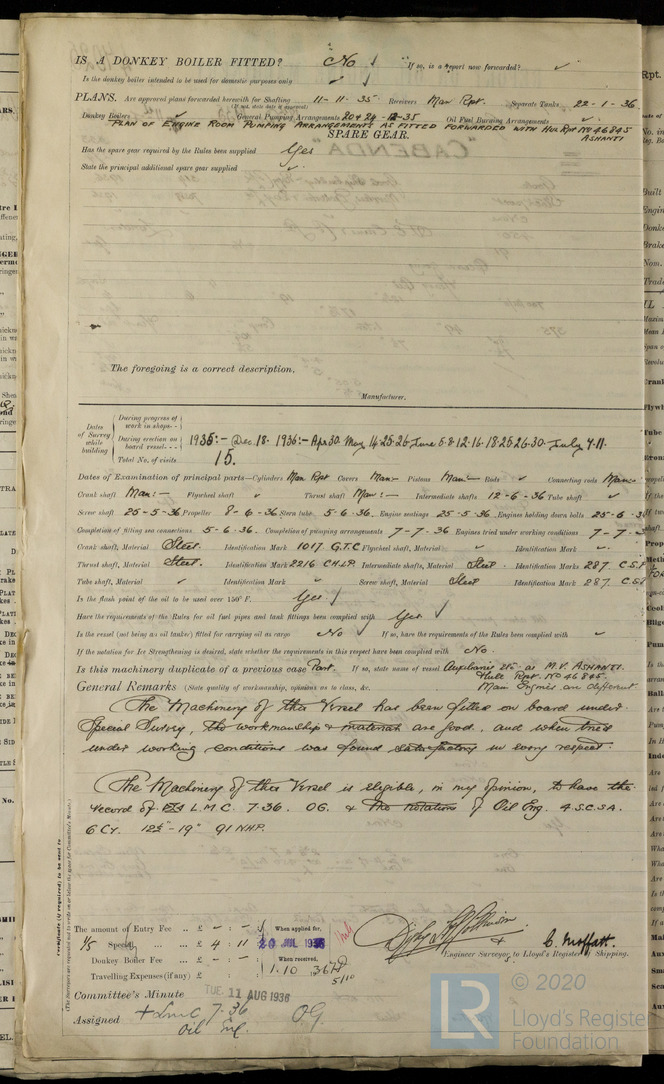 IS A DONKEY BOILER FITTED? No If so, is a report now forwarded? ✓
Is the donkey boiler intended to be used for domestic purposes only ✓
PLANS. Are approved plans forwarded herewith for Shafting 11-11-35 Receivers Man Rpt. Separate Tanks 22-1-36
(If not, state date of approval)
Donkey Boilers ✓ General Pumping Arrangements 20 & 24-12-35 Oil Fuel Burning Arrangements ✓
PLAN OF ENGINE ROOM PUMPING ARRANGEMENTS AS FITTED FORWARDED WITH HUL RPT NO 46845
ASHANTI
SPARE GEAR.
Has the spare gear required by the Rules been supplied Yes
State the principal additional spare gear supplied ✓
The foregoing is a correct description,
Manufacturer.
Dates of Survey while building
During progress of work in shops - -
During erection on board vessel - - - 1935:- Dec. 18. 1936:- Apr 30. May 14. 25. 26. June 5. 8. 12. 16. 18. 25. 26. 30. July 7. 11.
Total No. of visits 15.
Dates of Examination of principal parts—Cylinders Man Rpt Covers Man:- Pistons Man:- Rods ✓ Connecting rods Man:-
Crank shaft Man:- Flywheel shaft ✓ Thrust shaft Man:- Intermediate shafts 12-6-36 Tube shaft ✓
Screw shaft 25-5-36 Propeller 8-6-36 Stern tube 5-6-36. Engine seatings 25-5-36 Engines holding down bolts 25-6-36
Completion of fitting sea connections 5-6-36. Completion of pumping arrangements 7-7-36 Engines tried under working conditions 7-7-
Crank shaft, Material Steel. Identification Mark 1017 G.T.C Flywheel shaft, Material ✓ Identification Mark ✓
Thrust shaft, Material Steel. Identification Mark 2216 C.H.L.P. Intermediate shafts, Material Steel. Identification Marks 287. C.S.
Tube shaft, Material ✓ Identification Mark ✓ Screw shaft, Material Steel Identification Mark 287. C.S.
Is the flash point of the oil to be used over 150° F. Yes
Have the requirements of the Rules for oil fuel pipes and tank fittings been complied with Yes
Is the vessel (not being an oil tanker) fitted for carrying oil as cargo No If so, have the requirements of the Rules been complied with ✓
If the notation for Ice Strengthening is desired, state whether the requirements in this respect have been complied with No.
Is this machinery duplicate of a previous case Part. If so, state name of vessel Auxiliaries etc. as M.V. ASHANTI.
Hull Rpt. No 46845.
Main Engines are different
General Remarks (State quality of workmanship, opinions as to class, &c.
The Machinery of this Vessel has been fitted on board under
Special Survey, the workmanship & material are good, and when tried
under working conditions was found satisfactory in every respect.
The Machinery of this Vessel is eligible, in my opinion, to have the
record of L.M.C. 7.36. OG. & the notation of Oil Eng. 4.S.C.S.A.
6 Cy. 91 NHP.
The amount of Entry Fee .. £ - : - : When applied for,
1/5 Special ... £ 4 : 11 20 JUL 1936
Donkey Boiler Fee ... £ - : - : When received,
Travelling Expenses (if any) £ 1.10 36
Engineer Surveyor to Lloyd's Register of Shipping.
C. Moffatt.
Committee's Minute TUE. 11 AUG 1936
Assigned + Lmc 7.36 OG
Oil Eng.
© 2020
Lloyd's Register
Foundation